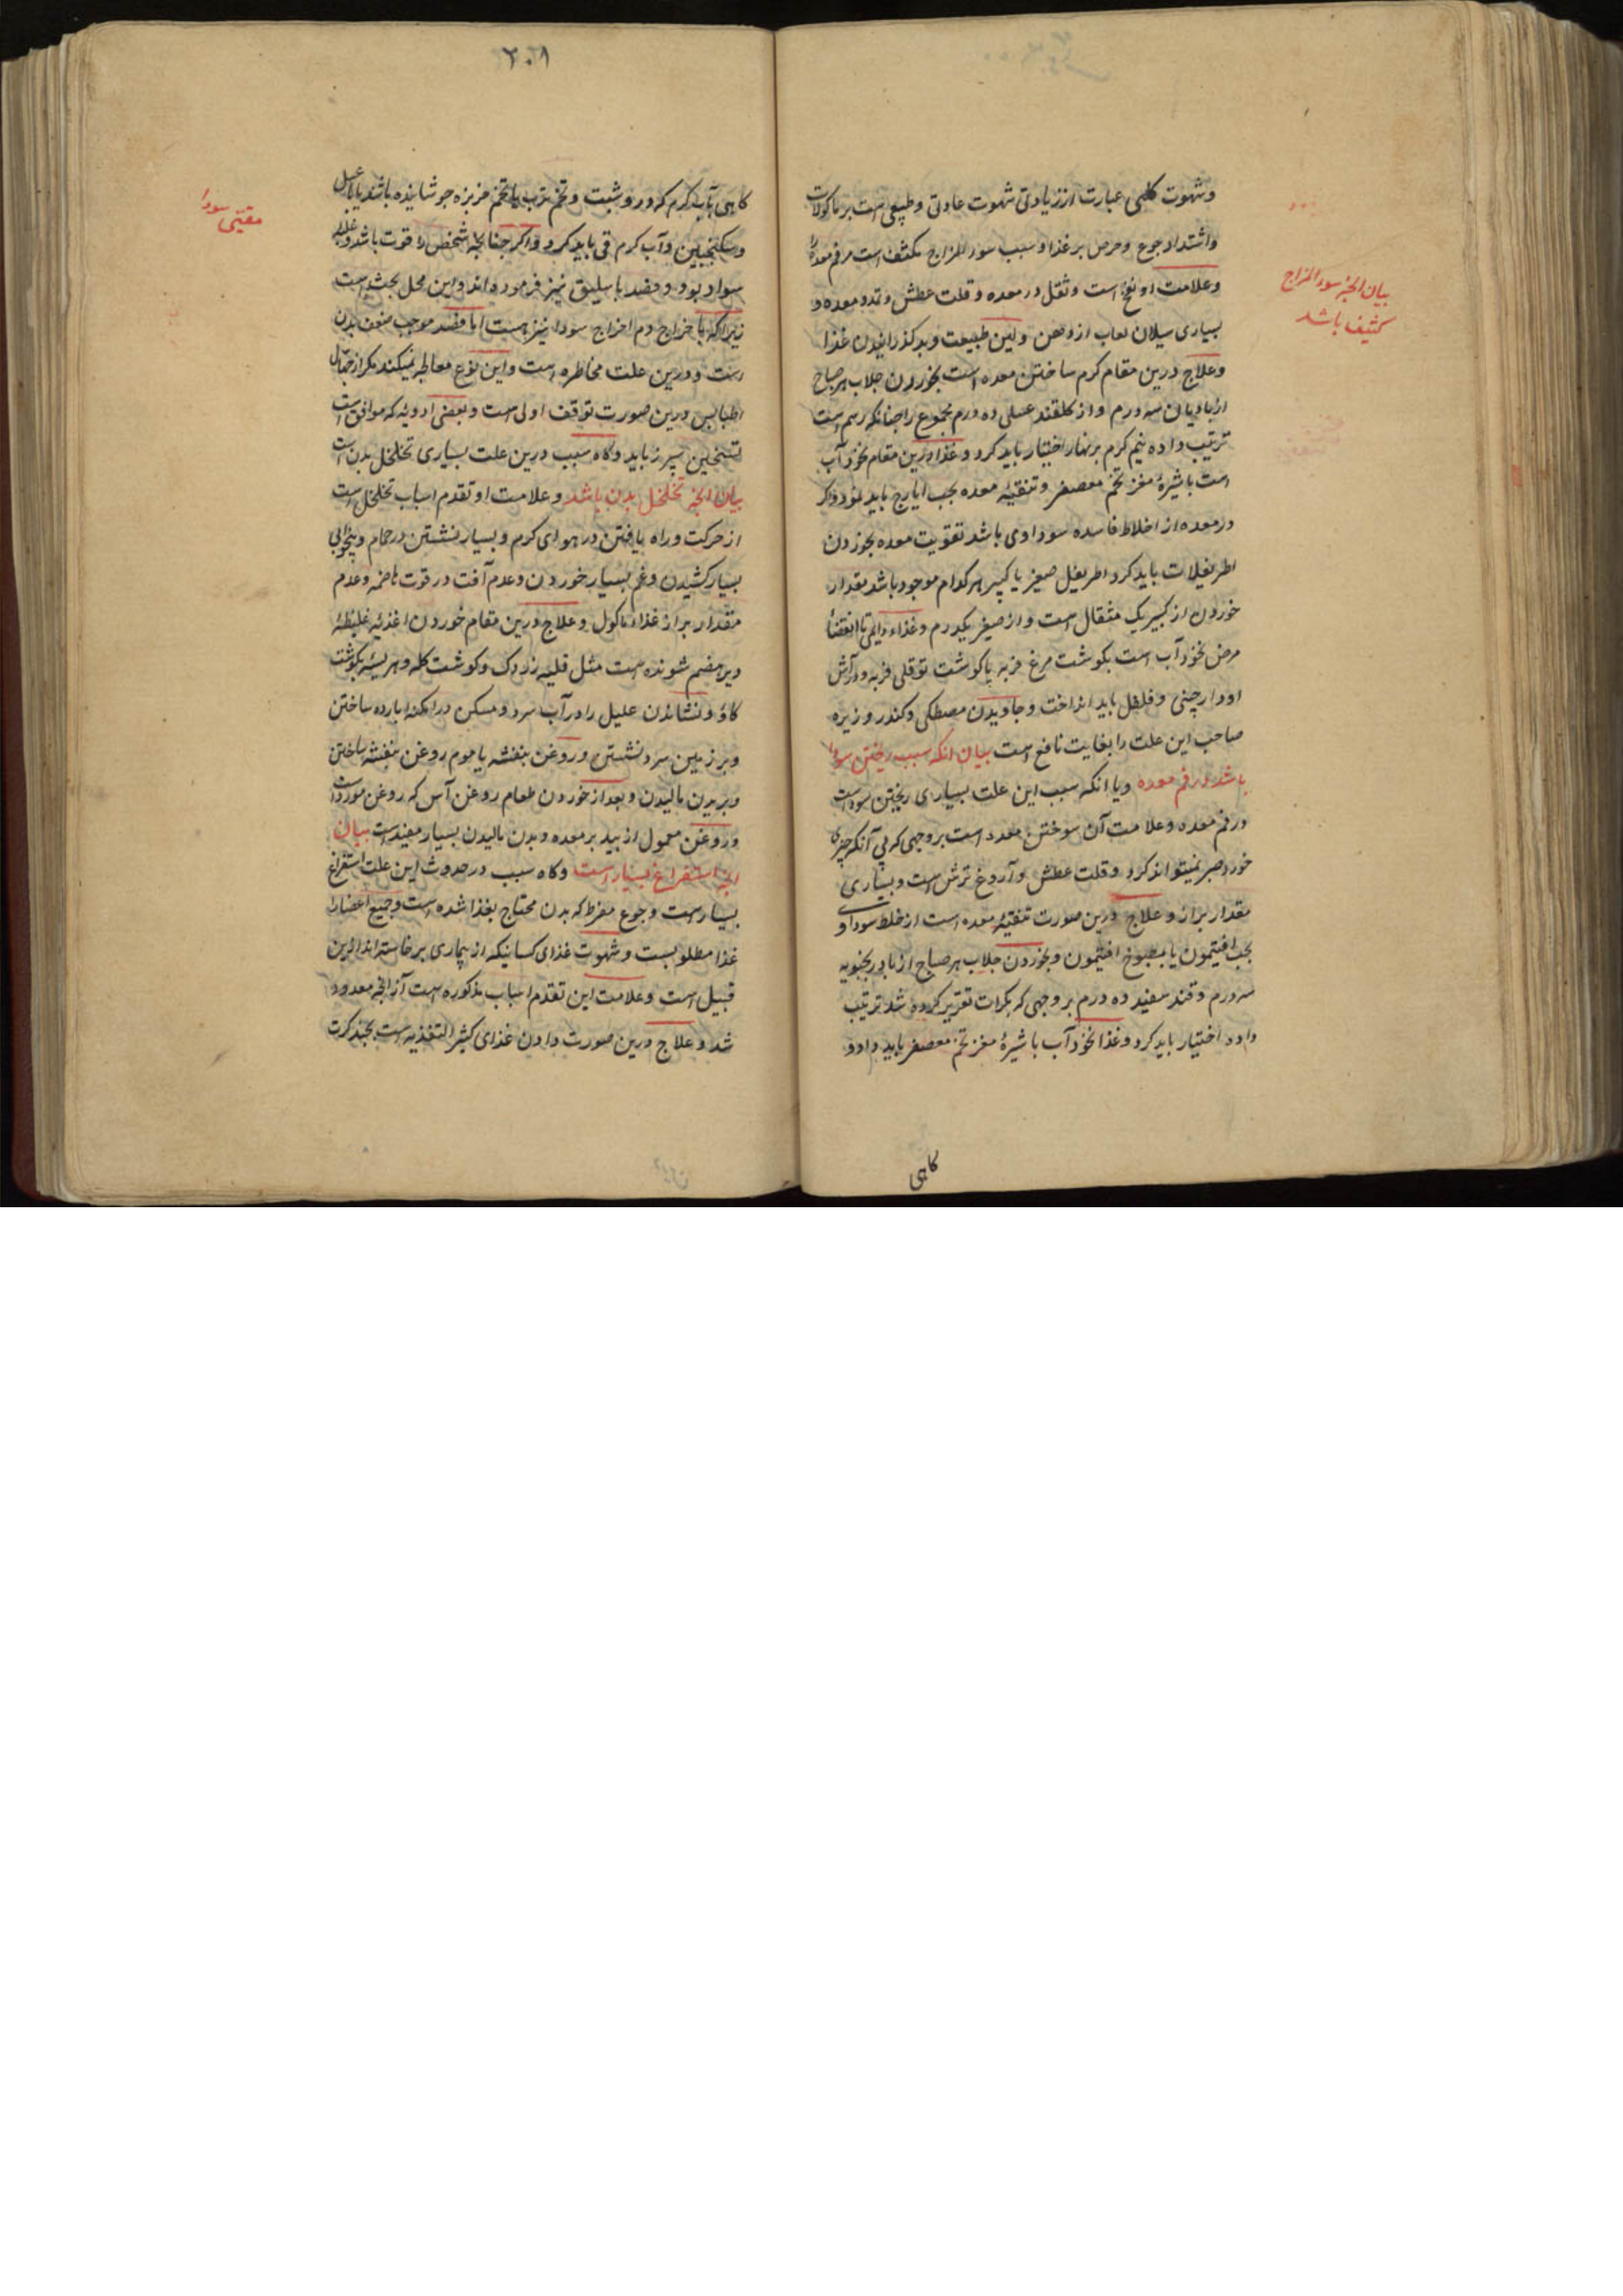 وشهوت کلبی عبارت از زیادتی شهوت عادتی وطبیعی است بر ماکولات
واشتداد جوع وحرص بر غذا وسبب سوء المزاج مکثف است مر فم معده را
وعلامت او نفخ است وثقل در معده وقلت عطش وتمدد معده و
بسیاری سیلان لعاب از دهن ولین طبیعت وبد گذرانیدن غذا
وعلاج درین مقام گرم ساختن معده است بخوردن جلاب هر صباح
از بادیان سه درم واز گلقند عسلی ده درم مجموع را چنانکه رسم است
ترتیب داده نیم گرم بر نهار اختیار باید کرد وغذا درین مقام نخودآب
است با شیرهٔ مغز تخم معصفر وتنقیهٔ معده بحب ایارج باید نمود واگر
در معده از اخلاط فاسده سوداوی باشد تقویت معده بخوردن
اطریفلات باید کرد اطریفل صغیر یا کبیر هر کدام موجود باشد مقدار
خوردن از کبیر یک مثقال است واز صغیر یکدرم وغذاء دایمی تا انقضاء
مرض نخودآب است بگوشت مرغ فربه یا گوشت توقلی فربه ودر آش
او دارچینی وفلفل باید انداخت وجاویدن مصطکی وکندر وزیره
صاحب این علت را بغایت نافع است بیان انکه سبب ریختن سودا
باشد در فم معده ویا انکه سبب این علت بسیاری ریختن سوداست
در فم معده وعلامت آن سوختن معده است بر وجهی که بی آنکه چیزی
خورد صبر نمیتواند کرد وقلت عطش وآروغ ترش است وبسیاری
مقدار براز وعلاج درین صورت تنقیهٔ معده است از خلط سوداوی
بحب افتیمون یا بمطبوخ افتیمون وبخوردن جلاب هر صباح از بادرنجبویه
سه درم وقند سفید ده درم بر وجهی که بکرات تقریر کرده شد ترتیب
داده اختیار باید کرد وغذا نخودآب با شیرهٔ مغز تخم معصفر باید داد و
گاهی
بیان انچه سوء المزاج
مکثف باشد
۲۰۸
گاهی بآب گرم که درو شبت وتخم ترب یا تخم خربزه جوشانیده باشند یا بعسل
وسکنجبین وآب گرم قی باید کرد واگر چنانچه شخص را قوت باشد وغلبه
سودا بود وفصد باسلیق نیز فرموده اند واین محل بحث است
زیرا که با خراج دم اخراج سودا نیز هست اما فصد موجب ضعف بدن
است ودرین علت مخاطره است واین نوع معالجه نمیکند مگر از جهال
اطبا پس درین صورت توقف اولی است وبعضی ادویه که موافق است
تسخین سپرز باید وگاه سبب درین علت بسیاری تخلخل بدن است
بیان انچه تخلخل بدن باشد وعلامت او تقدم اسباب تخلخل است
از حرکت وراه یافتن در هوای گرم وبسیار نشستن در حمام وبیخوابی
بسیار کشیدن وغم بسیار خوردن وعدم آفت در قوت هاضمه وعدم
مقدار براز غذاء ماکول وعلاج درین مقام خوردن اغذیهٔ غلیظهٔ
دیر هضم شونده است مثل قلیه زردک وگوشت کله وهریسهٔ بگوشت
گاو ونشاندن علیل را در آب سرد ومسکن در امکنهٔ بارده ساختن
وبر زمین سرد نشستن وروغن بنفشه یا موم روغن بنفشه ساختن
وبر بدن مالیدن وبعد از خوردن طعام روغن آس که روغن مورد است
وروغن معمول از بید بر معده وبدن مالیدن بسیار مفید است بیان
انچه استفراغ بسیار است وگاه سبب در حدوث این علت استفراغ
بسیار است وجوع مفرط که بدن محتاج بغذا شده است وجمیع اعضا را
غذا مطلوبست وشهوت غذای کسانیکه از بیماری برخاسته اند ازین
قبیل است وعلامت این تقدم اسباب مذکوره است آنرا انچه معدود
شد وعلاج درین صورت دادن غذای کثیر التغذیه است بچند کرت
مقیئ سودا